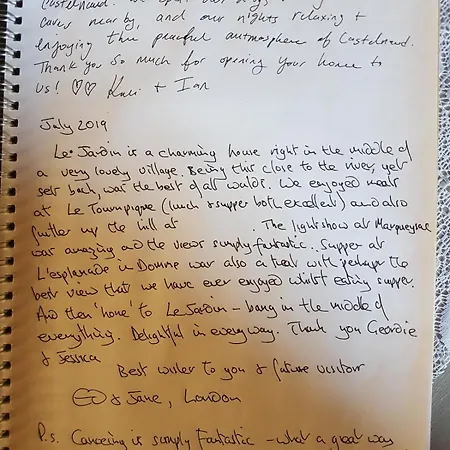 caves nearby, and our nights relaxing +
enjoying the peaceful autmosphere of Castelnaud.
Thank you so much for opening your home to
us! ♡♡ + Ian
July 2019
Le Jardin is a charming house right in the middle of
a very lovely village. Being this close to the river, yet
set back, was the best of all worlds. We enjoyed meals
at Le Tournepique (lunch & supper both excellent) and also
further up the hill at . The lightshow at Marqueyssac
was amazing and the views simply fantastic. Supper at
L'esplanade in Domme was also a treat with perhaps the
best view that we have ever enjoyed whilst eating supper.
And then 'home' to Le Jardin - bang in the middle of
everything. Delightful in every way. Thank you Geordie
& Jessica
Best wishes to you & future visitors
& Jane, London
P.s. Canoeing is simply fantastic - what a great way